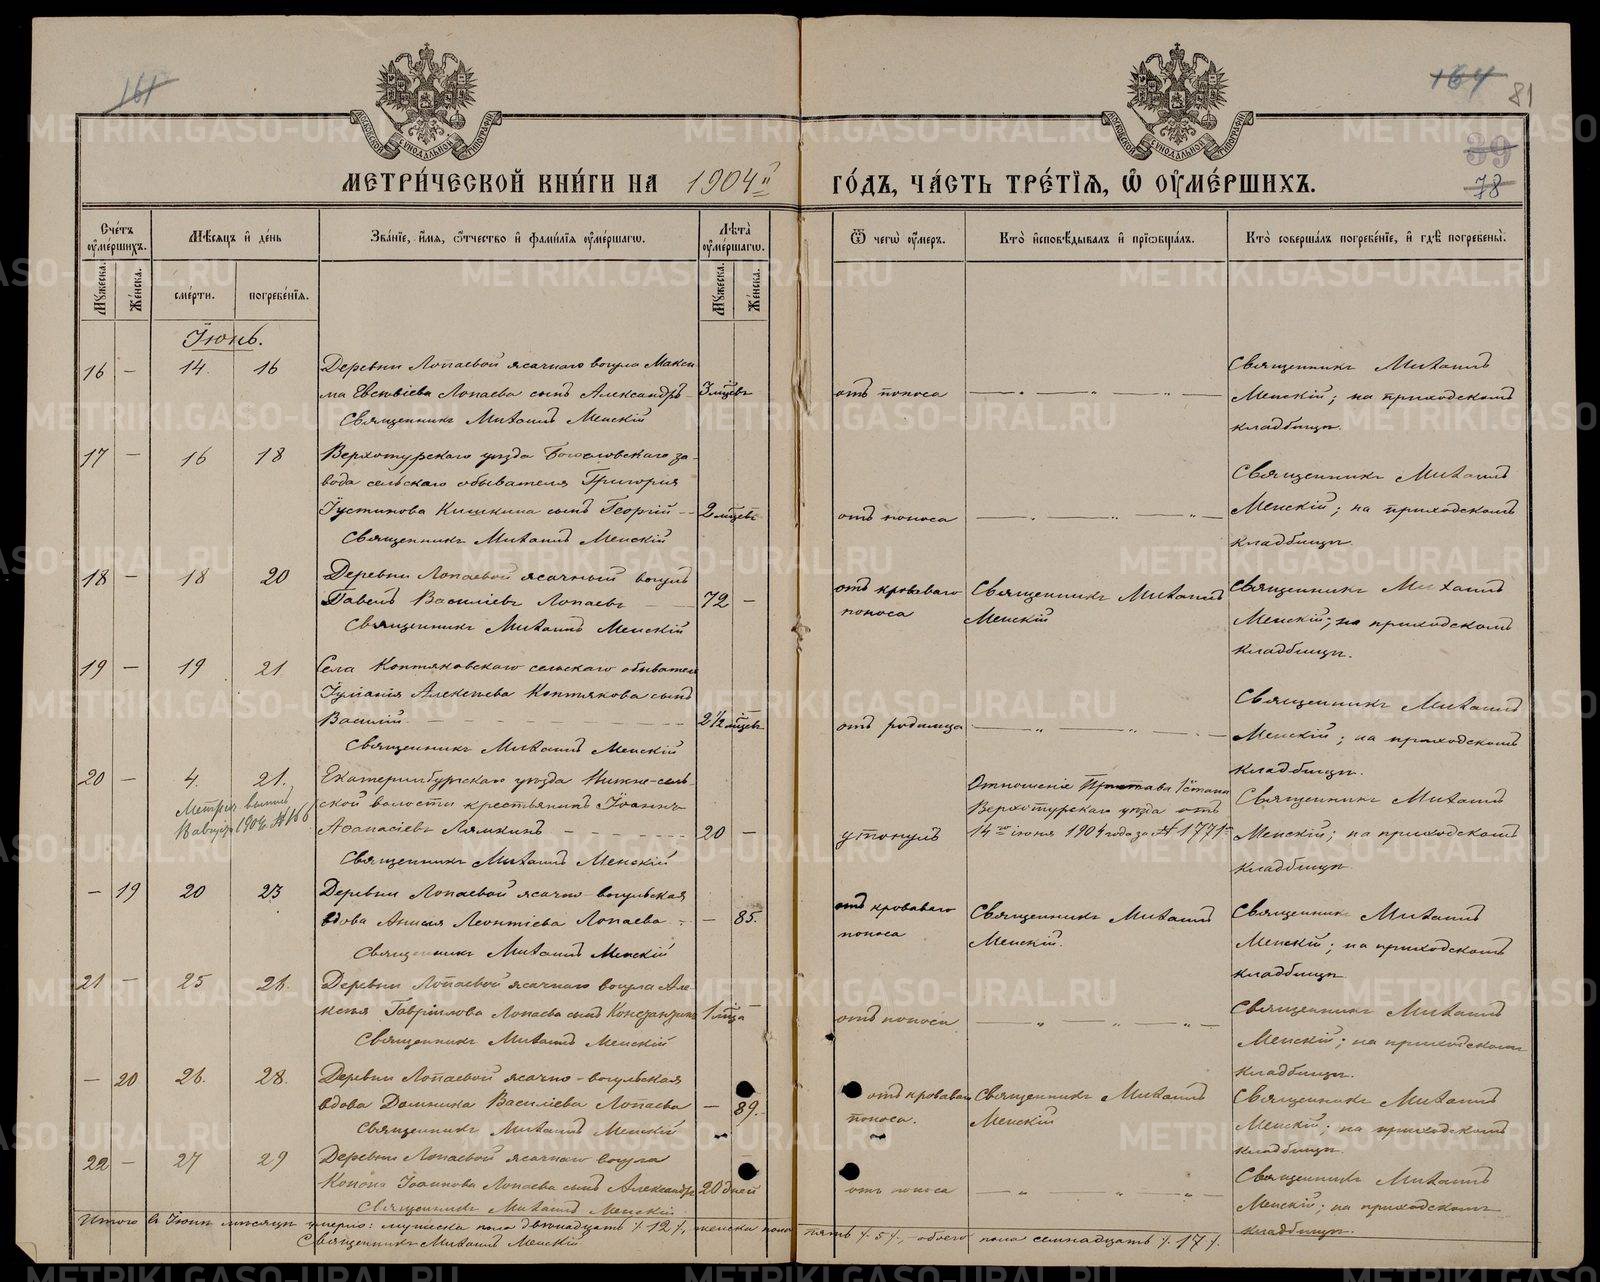 161
164
81
39
78
МЕТРИ́ЧЕСКОЙ КНИ́ГИ НА 1904й
ГО́ДЪ, ЧА́СТЬ ТРЕ́ТІѦ, Ѿ ОУМЕ́РШИХЪ.
Сче́тъ оуме́ршихъ.
Мѣ́сяцъ и де́нь
Зва́ніе, и́мя, ѻ́тчество и фами́лія оуме́ршагѡ.
Лѣ́та оуме́ршагѡ.
Ѿ чегѡ̀ оу́меръ.
Кто̀ исповѣ́дывалъ и пріѡбща́лъ.
Кто̀ соверша́лъ погребе́ніе, и гдѣ̀ погребены̀.
Мꙋ́жеска.
Же́нска.
сме́рти.
погребе́нія.
Мꙋ́жеска.
Же́нска.
Іюнь.
16 — 14. 16 Деревни Лопаевой ясачнаго вогула Макси
ма Евсевіева Лопаева сынъ Александръ — 3 мцевъ
Священникъ Михаилъ Менскій
отъ поноса
Священникъ Михаилъ
Менскій; на приходскомъ
кладбищѣ.
17 — 16 18 Верхотурскаго уѣзда Богословскаго за-
вода сельскаго обывателя Григорія
Іустинова Кишкина сынъ Георгій — 2 мцевъ
Священникъ Михаилъ Менскій
отъ поноса
Священникъ Михаилъ
Менскій; на приходскомъ
кладбищѣ.
18 — 18 20 Деревни Лопаевой ясачный вогулъ
Павелъ Василіевъ Лопаевъ — 72 —
Священникъ Михаилъ Менскій
отъ кроваваго
поноса
Священникъ Михаилъ
Менскій
Священникъ Михаилъ
Менскій; на приходскомъ
кладбищѣ.
19 — 19 21 Села Коптяковскаго сельскаго обывателя
Іуліанія Алексѣева Коптякова сынъ
Василій 2½ мцевъ
Священникъ Михаилъ Менскій
отъ родимца
Священникъ Михаилъ
Менскій; на приходскомъ
кладбищѣ.
20 — 4. 21. Екатеринбургскаго уѣзда Нижне-сель-
ской волости крестьянинъ Іоаннъ
Аѳанасіевъ Лямкинъ — 20 —
Священникъ Михаилъ Менскій
утонулъ
Отношеніе Пристава 1 стана
Верхотурскаго уѣзда отъ
14го іюня 1904 года за № 1771м
Священникъ Михаилъ
Менскій; на приходскомъ
кладбищѣ
— 19 20 23 Деревни Лопаевой ясачно вогульская
вдова Анисія Леонтіева Лопаева — 85.
Священникъ Михаилъ Менскій
отъ кроваваго
поноса
Священникъ Михаилъ
Менскій.
Священникъ Михаилъ
Менскій; на приходскомъ
кладбищѣ
21 — 25 26. Деревни Лопаевой ясачнаго вогула Але-
ксѣя Гавріилова Лопаева сынъ Константинъ 1 мца
Священникъ Михаилъ Менскій
отъ поноса
Священникъ Михаилъ
Менскій; на приходскомъ
кладбищѣ.
— 20 26. 28. Деревни Лопаевой ясачно-вогульская
вдова Домника Василіева Лопаева — 89.
Священникъ Михаилъ Менскій
отъ кроваваго
поноса.
Священникъ Михаилъ
Менскій
Священникъ Михаилъ
Менскій; на приходскомъ
кладбищѣ.
22 — 27 29 Деревни Лопаевой ясачнаго вогула
Конона Іоаннова Лопаева сынъ Александръ 20 дней
Священникъ Михаилъ Менскій.
отъ поноса
Священникъ Михаилъ
Менскій; на приходскомъ
кладбищѣ.
Итого въ Іюнѣ мѣсяцѣ умерло: мужеска пола двѣнадцать /.12/., женска пола пять /.5/., обоего пола семнадцать /.17/.
Священникъ Михаилъ Менскій
METRIKI.GASO-URAL.RU